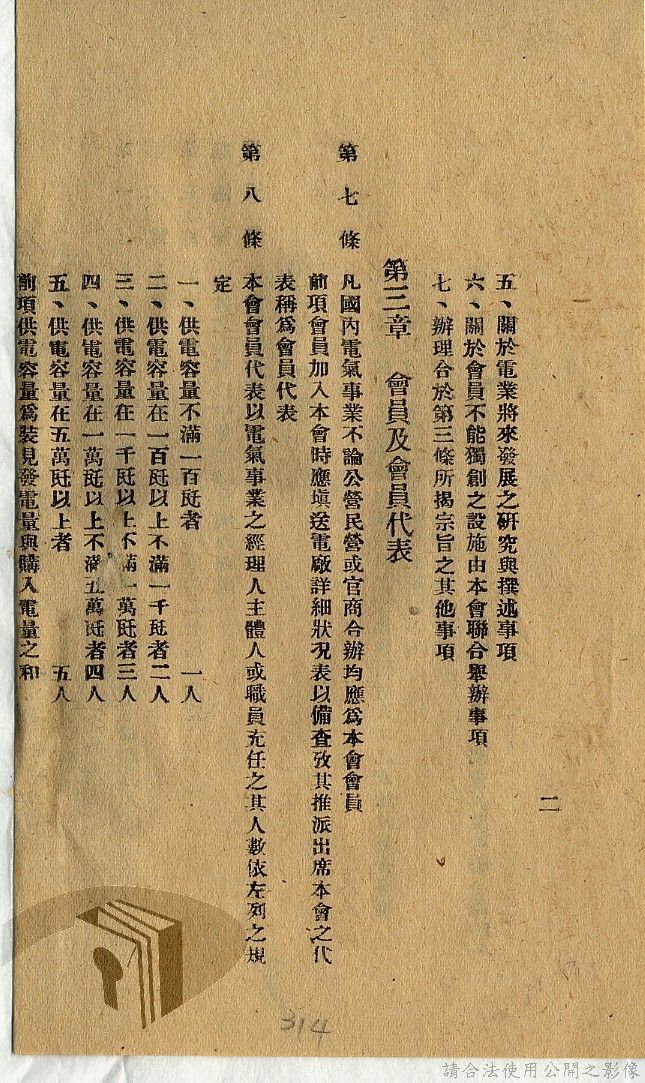 二
五、關於電業將來發展之研究與撰述事項
六、關於會員不能獨創之設施由本會聯合舉辦事項
七、辦理合於第三條所揭宗旨之其他事項
第三章　會員及會員代表
第七條　凡國內電氣事業不論公營民營或官商合辦均應爲本會會員
前項會員加入本會時應塡送電廠詳細狀況表以備查攷其推派出席本會之代
表稱爲會員代表
第八條　本會會員代表以電氣事業之經理人主體人或職員充任之其人數依左列之規
定
一、供電容量不滿一百瓩者　一人
二、供電容量在一百瓩以上不滿一千瓩者二人
三、供電容量在一千瓩以上不滿一萬瓩者三人
四、供電容量在一萬瓩以上不滿五萬瓩者四人
五、供電容量在五萬瓩以上者　五人
前項供電容量爲裝見發電量與購入電量之和
314
請合法使用公開之影像